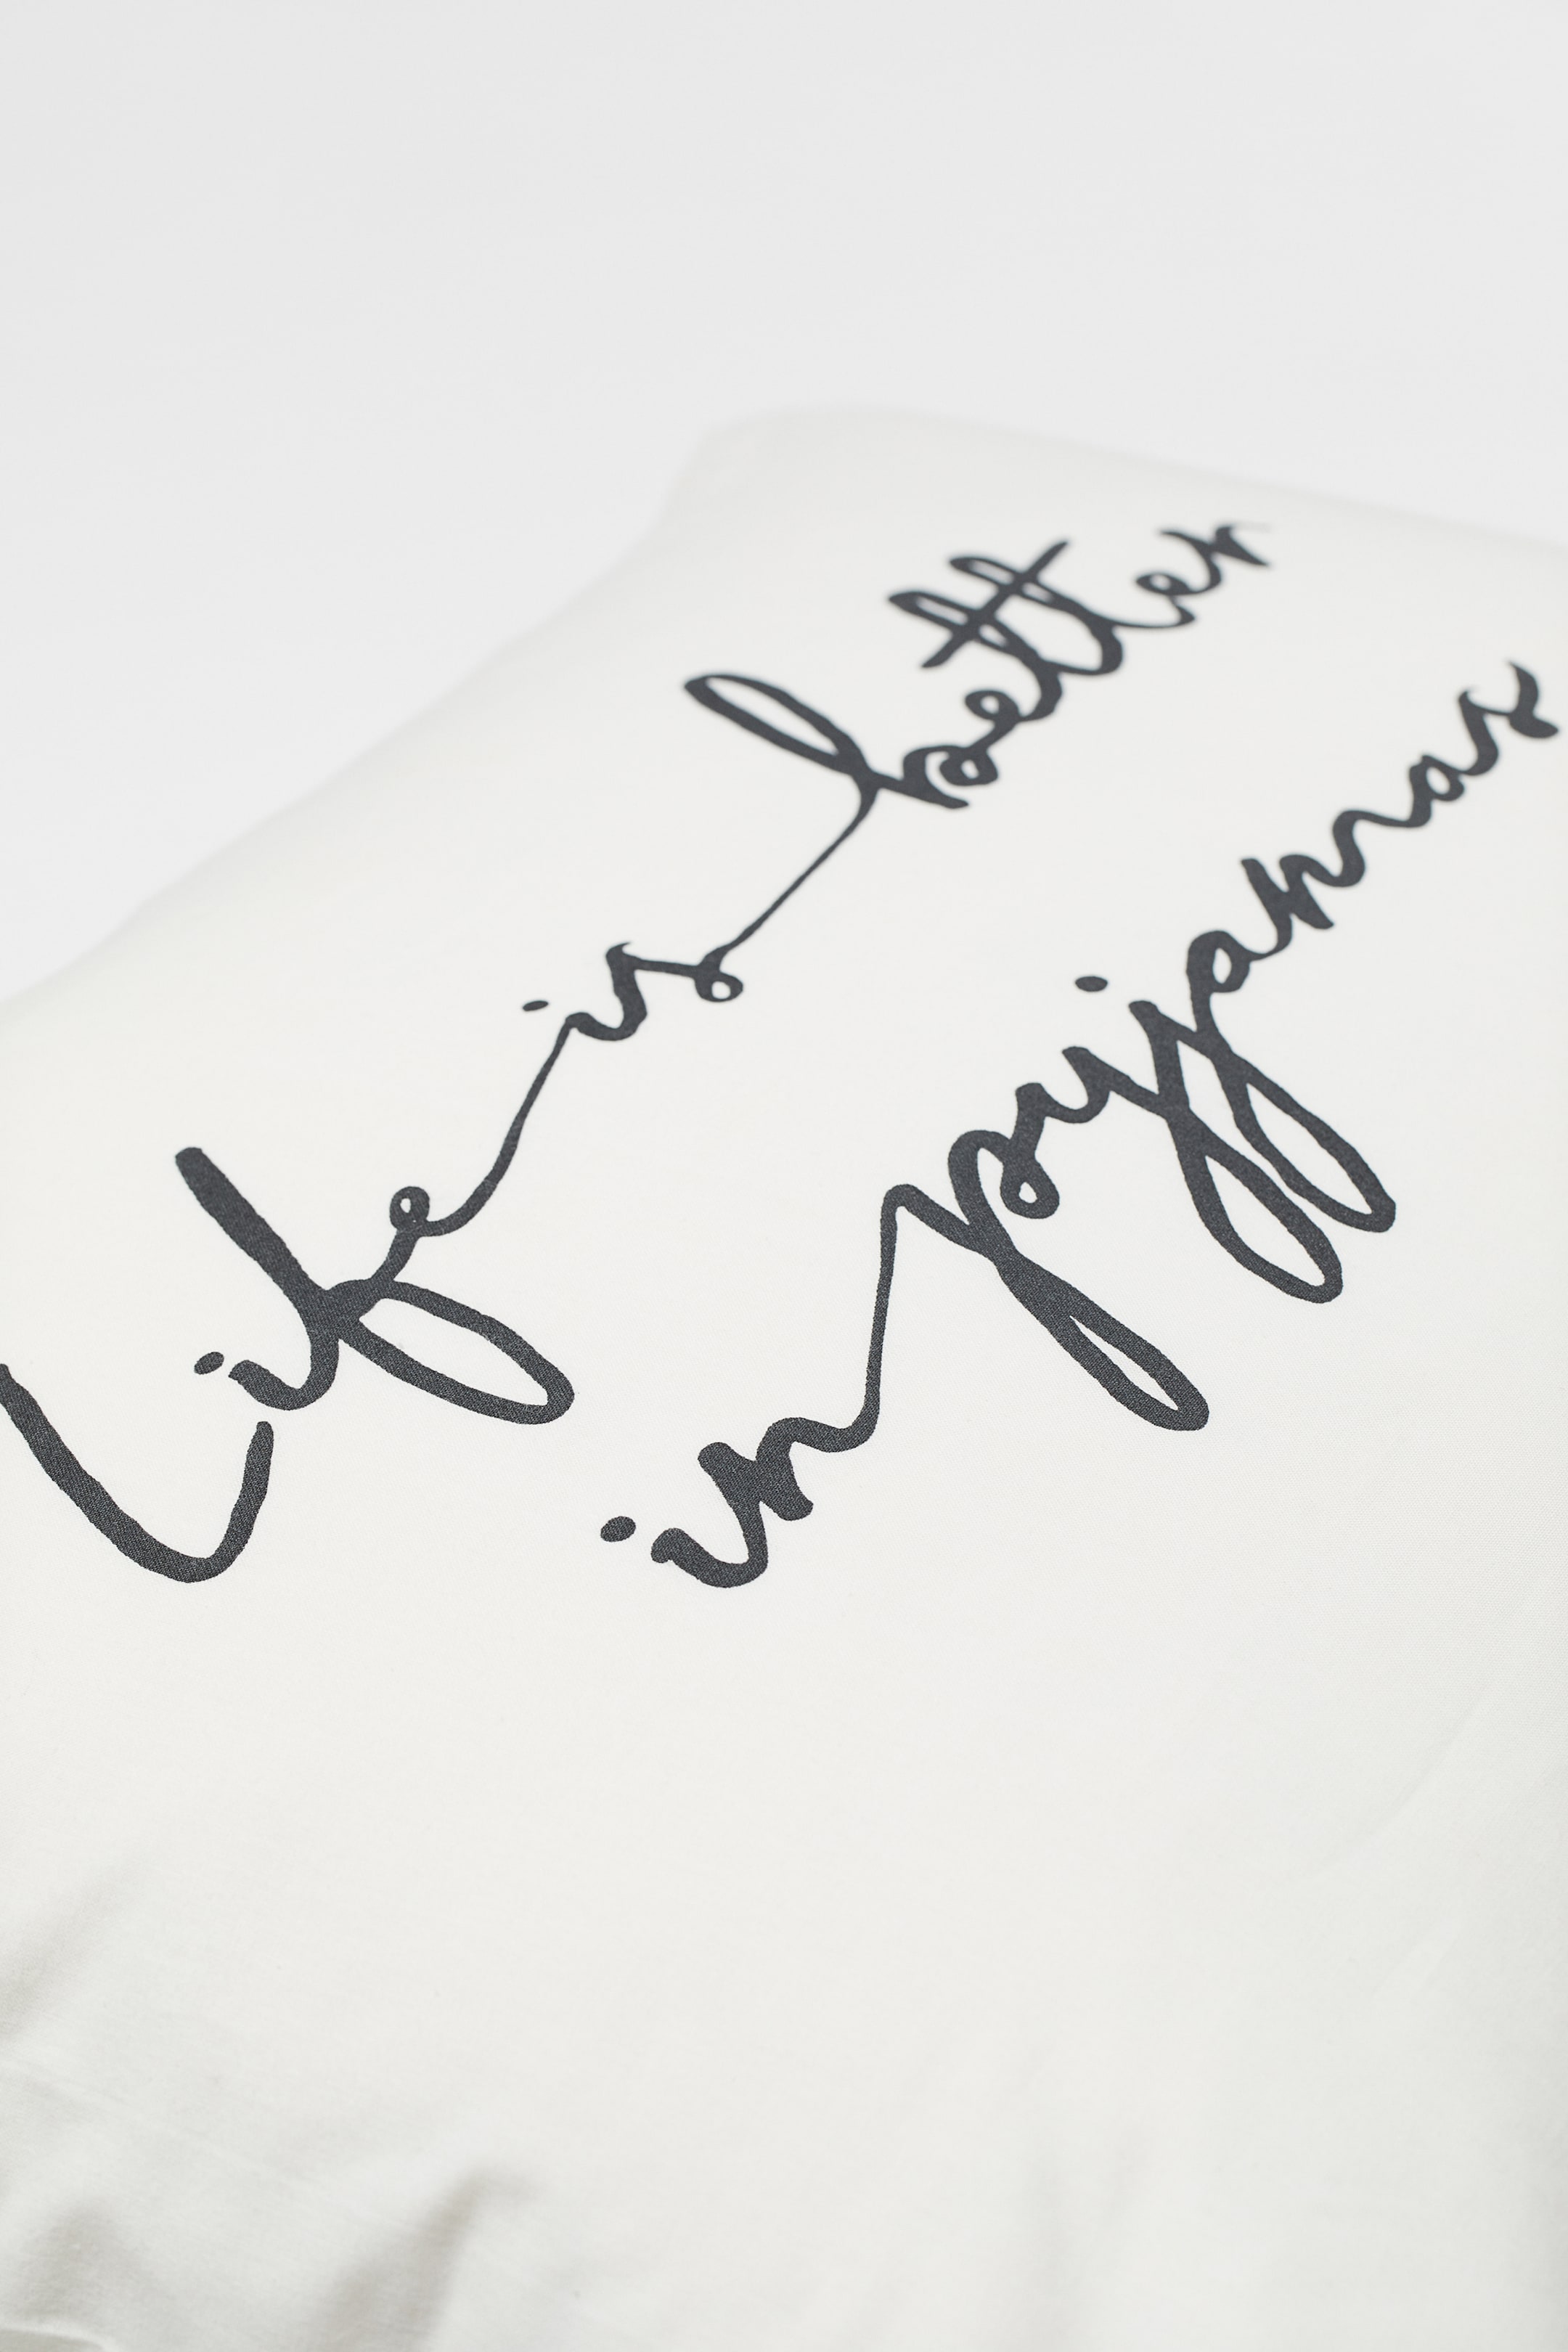 Life is better
in pyjamas